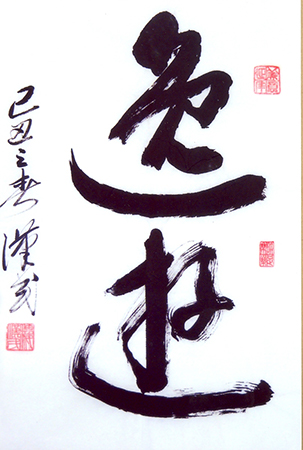 逸遊
己丑之春漢